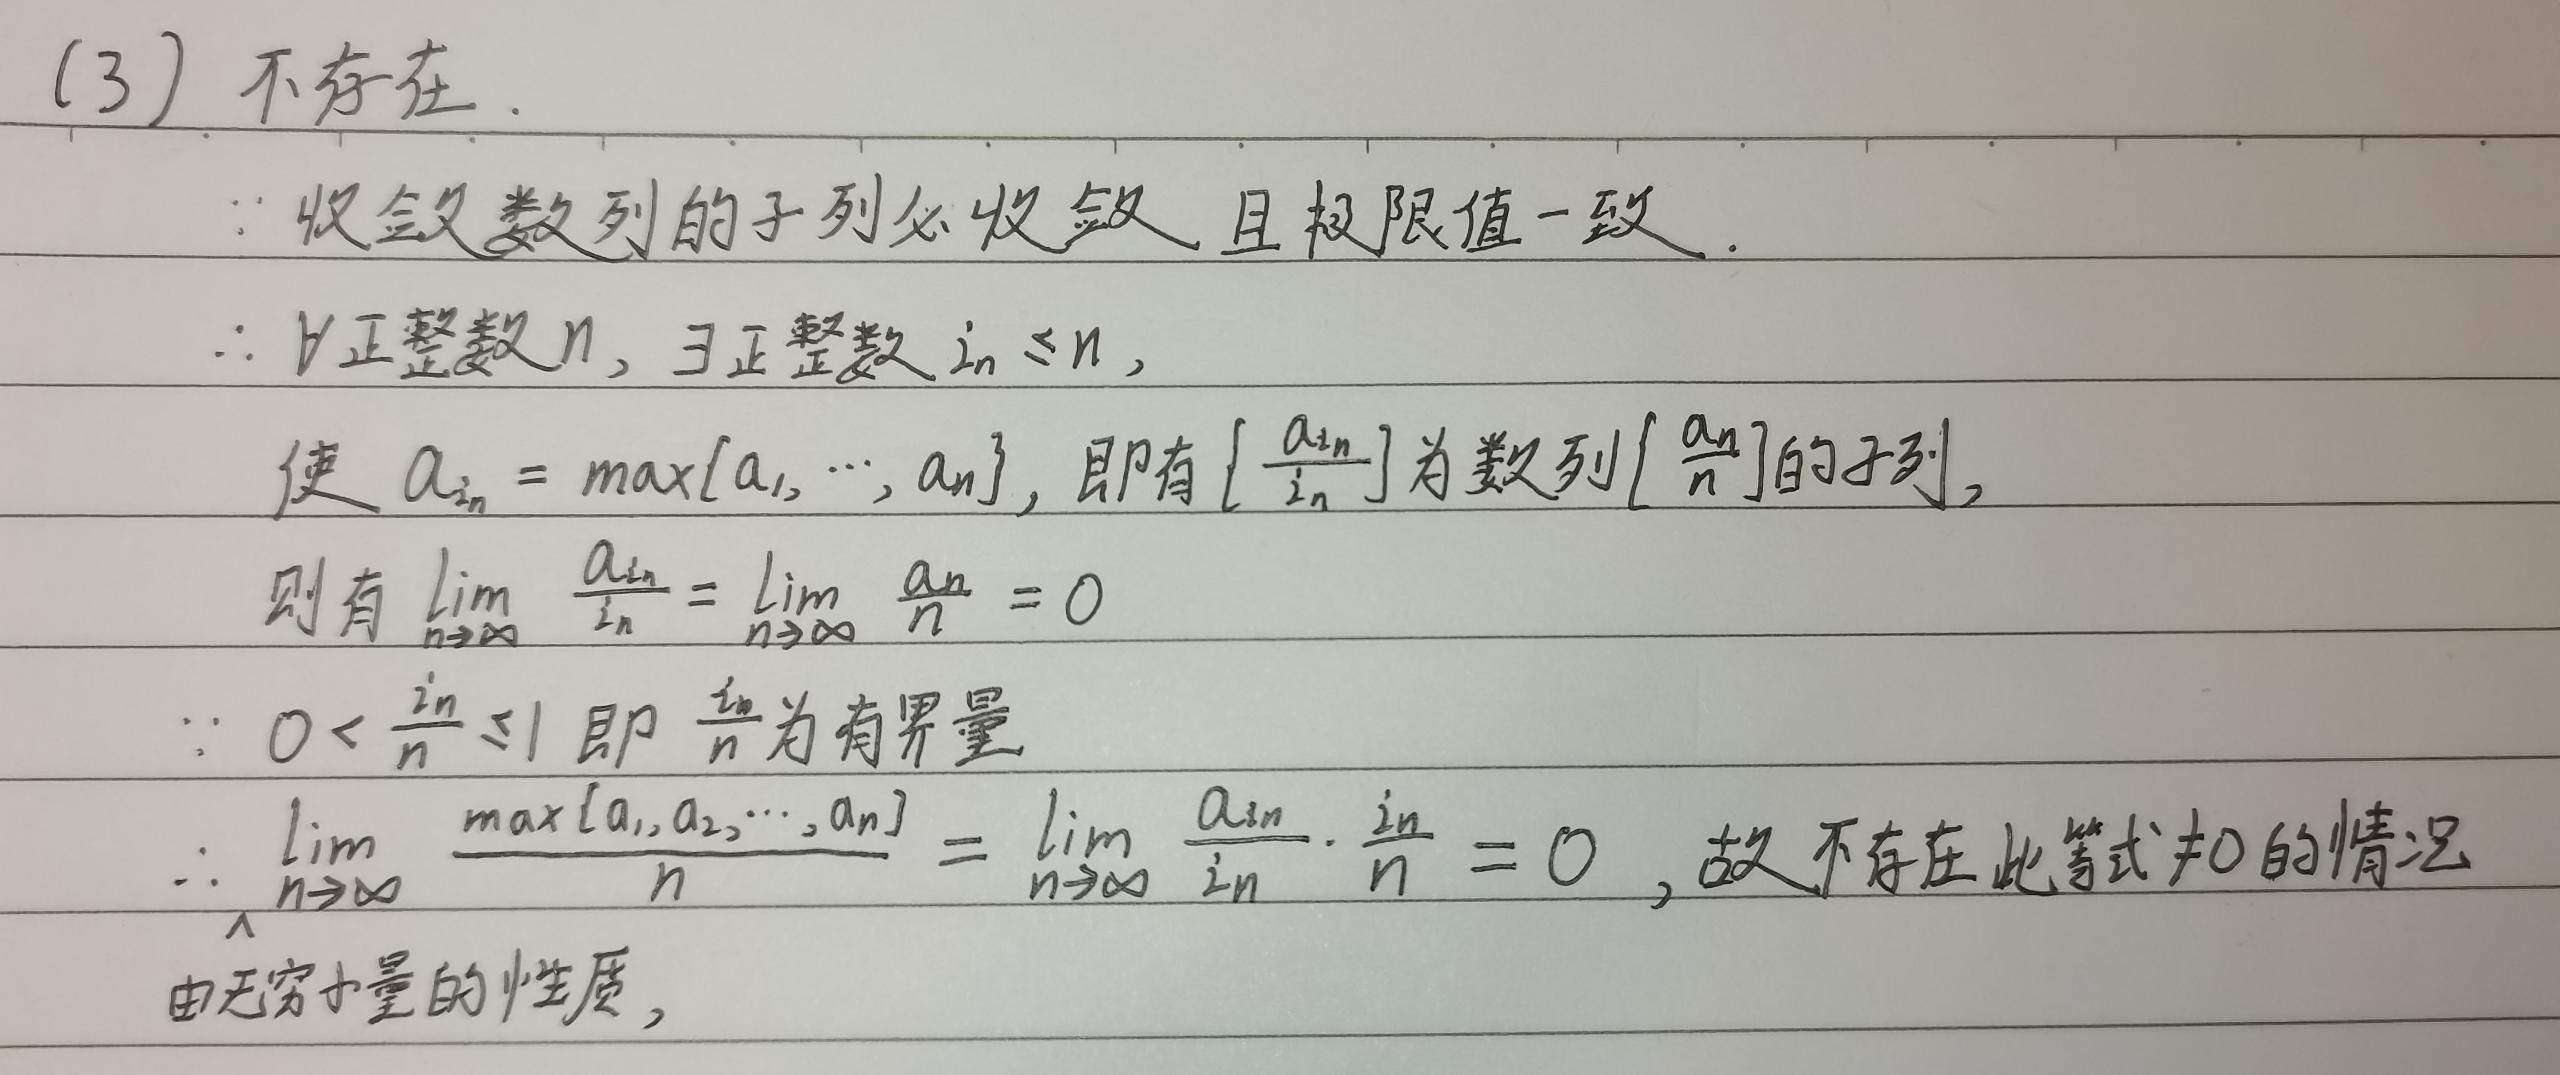 (3) 不存在.
∵ 收敛数列的子列必收敛且极限值一致.
∴ ∀正整数n, ∃正整数 iₙ ≤ n,
使 a_{iₙ} = max{a₁, ⋯, aₙ}, 即有{a_{iₙ}/iₙ}为数列{aₙ/n}的子列,
则有 lim_{n→∞} a_{iₙ}/iₙ = lim_{n→∞} aₙ/n = 0
∵ 0 < iₙ/n ≤ 1 即 iₙ/n 为有界量
∴ lim_{n→∞} max{a₁, a₂, ⋯, aₙ}/n = lim_{n→∞} a_{iₙ}/iₙ · iₙ/n = 0 , 故不存在此等式≠0的情况
^
由无穷小量的性质,